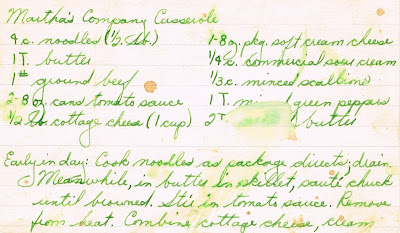 Martha's Company Casserole
4 c. noodles (1/2 lb.)
1 T. butter
1# ground beef
2-8 oz. cans tomato sauce
1/2 lb. cottage cheese (1 cup)
1-8 oz. pkg. soft cream cheese
1/4 c. commercial sour cream
1/3 c. minced scallions
1 T. green peppers
2 T. butter
Early in day: Cook noodles as package directs; drain.
Meanwhile, in butter in skillet, sauté chuck
until browned. Stir in tomato sauce. Remove
from heat. Combine cottage cheese, cream